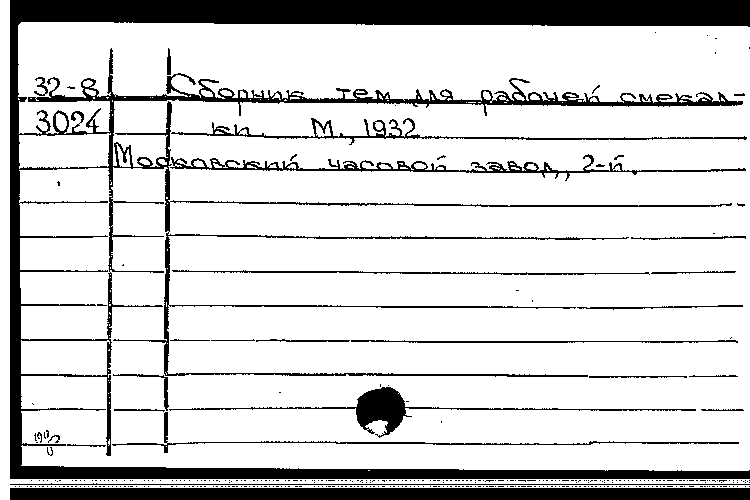 32-8 Сборник тем для рабочей смекал-
3024 ки. М., 1932
Московский часовой завод, 2-й.